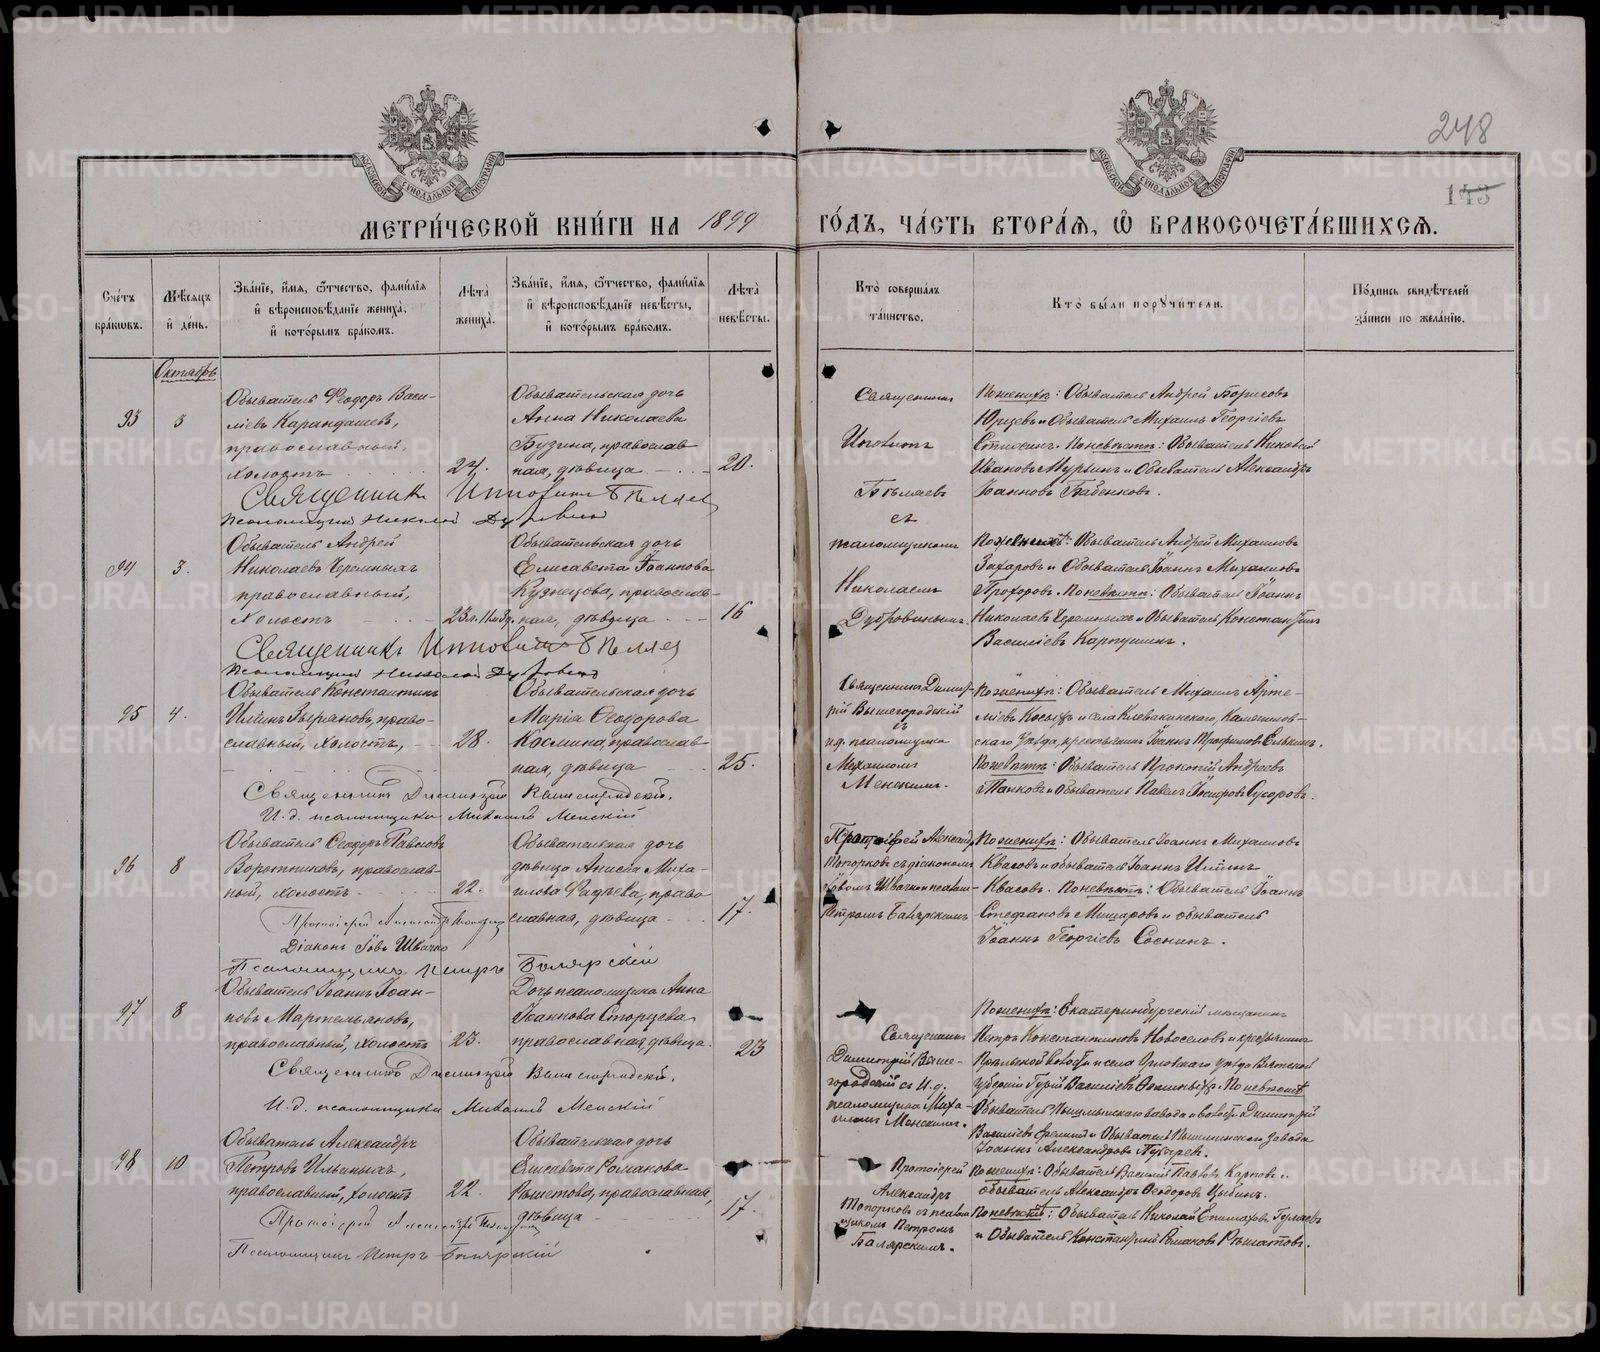 248
143
МЕТРИ́ЧЕСКОЙ КНИ́ГИ НА 1899 ГО́ДЪ, ЧА́СТЬ ВТОРА́Ѧ, Ѽ БРАКОСОЧЕТА́ВШИХСѦ.
Сче́тъ бра́кѡвъ.
Мѣ́сѧцъ и҆ де́нь.
Зва́нїе, и҆́мѧ, ѻ҆́тчество, фами́лїѧ и҆ вѣроисповѣ́данїе жениха̀, и҆ кото́рымъ бра́комъ.
Лѣ́та жениха̀.
Зва́нїе, и҆́мѧ, ѻ҆́тчество, фами́лїѧ и҆ вѣроисповѣ́данїе невѣ́сты, и҆ кото́рымъ бра́комъ.
Лѣ́та невѣ́сты.
Кто̀ соверша́лъ та́инство.
Кто̀ бы́ли порꙋчи́тели.
По́дпись свидѣ́телей за́писи по жела́нїю.
Октябрь
93
3
Обыватель Ѳеодоръ Васи-
ліевъ Карандашевъ,
православный,
холостъ
24.
Обывательская дочь
Анна Николаева
Бузина, православ
ная, дѣвица
20.
Священникъ
Ипполитъ
Бѣляевъ
съ
псаломщикомъ
Николаемъ
Дубровинымъ.
По женихѣ: Обыватель Андрей Борисовъ
и Обыватель Михаилъ Георгіевъ
По невѣстѣ: Обыватель Николай
Ивановъ Мурзинъ и Обыватель Александръ
Іоанновъ Бабенковъ.
Священникъ Ипполитъ Бѣляевъ
Псаломщикъ Николай Дубровинъ
94
3.
Обыватель Андрей
Николаевъ Черемныхъ
православный,
Холостъ
Обывательская дочь
Елисавета Іоаннова
Кузнецова, православ-
ная, дѣвица
16
По женихѣ: Обыватель Андрей Михаиловъ
Захаровъ и Обыватель Іоаннъ Михаиловъ
Прохоровъ. По невѣстѣ: Обыватель Іоаннъ
Николаевъ Черемныхъ и Обыватель Константинъ
Василіевъ Карпушинъ.
Священникъ Ипполитъ Бѣляевъ
Псаломщикъ Николай Дубровинъ
95
4.
Обыватель Константинъ
Илiинъ Зыряновъ, право-
славный, холостъ,
28.
Обывательская дочь
Марія Ѳеодорова
Космина, православ
ная, дѣвица
25.
Священникъ Димит-
рій Вышегородскій
съ
и.д. псаломщика
Михаиломъ
Менскимъ.
По женихѣ: Обыватель Михаилъ Арте-
міевъ Косыхъ и села Клевакинскаго, Камышлов-
скаго Уѣзда, крестьянинъ Іоаннъ Трофимовъ Елькинъ.
По невѣстѣ: Обыватель Прокопій Андреевъ
Панковъ и Обыватель Павелъ
Священникъ Димитрій Вышегородскій.
И. д. псаломщика Михаилъ Менскій
96
8
Обыватель Ѳеодоръ Павловъ
Воротниковъ, православ-
ный, холостъ
22.
Обывательская дочь
дѣвица Анисія Миха-
илова Фадѣева, право
славная, дѣвица
17.
Протоіерей Александръ
Топорковъ съ діакономъ
Іовомъ Швачко и псалом-
Петромъ Балярскимъ
По женихѣ: Обыватель Іоаннъ Михаиловъ
Квасовъ и обыватель Іоаннъ Илiинъ
Квасовъ. По невѣстѣ: Обыватель Іоаннъ
Стефановъ Мишаровъ и обыватель
Іоаннъ Георгіевъ Соснинъ.
Протоіерей Александръ Топорковъ
Діаконъ Іовъ Швачко
Псаломщикъ Петръ Балярскій
97
8
Обыватель Іоаннъ Іоан-
новъ Мартемьяновъ,
православный, холостъ
23.
Дочь псаломщика Анна
Іоаннова Старцева
православная, дѣвица.
23
Священникъ
Димитрій Выше-
городскій съ И.д.
псаломщика Миха-
иломъ Менскимъ.
По женихѣ: Екатеринбургскій мѣщанинъ
Петръ Константиновъ Новоселовъ и крестьянинъ
волости и села Орловскаго уѣзда Вятской
губерніи Гурій Василіевъ По невѣстѣ
Обыватель Пышминскаго завода и волости Димитрій
Василіевъ и Обыватель Пышминскаго Завода
Іоаннъ Александровъ Пузыревъ.
Священникъ Димитрій Вышегородскій.
И. д. псаломщика Михаилъ Менскій
98
10
Обыватель Александръ
Петровъ Ильиныхъ,
православный, холостъ
22.
Обывательская дочь
Елисавета Романова
Рѣшетова, православная,
дѣвица
17.
Протоіерей
Александръ
Топорковъ съ псалом
щикомъ Петромъ
Балярскимъ.
По женихѣ: Обыватель Василій Павловъ Карповъ и
обыватель Александръ Ѳеодоровъ Цыбинъ.
По невѣстѣ: Обыватель Николай Епимаховъ Гуляевъ
и Обыватель Константинъ Романовъ Рѣшетовъ.
Протоіерей Александръ Топорковъ
Псаломщикъ Петръ Балярскій
METRIKI.GASO-URAL.RU